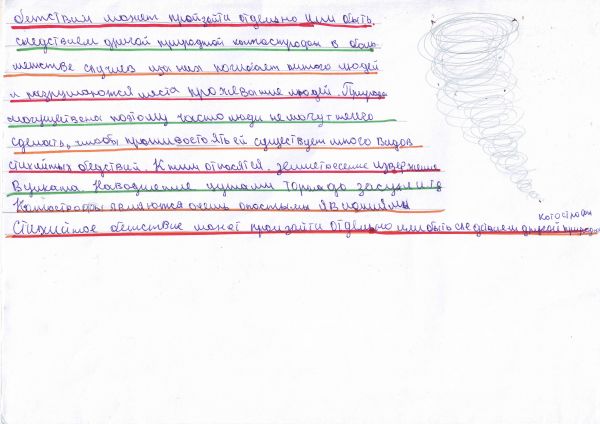 бетствии может пройзойти отдельно или быть
следствием другой природной катастрофой в боль
шенстве случиев из них погибает много людей
и разрушаются места проживание людей. Природа
могущественна поэтому часто люди не могут нечего
сделать, чтобы противостоять ей существует много видов
стихийных бедствий. К ним относятся. землетресение извержение
Вулкана Наводнение цунами Торнадо засуха и тд
Катастрофы являются очень опасными
Стихийное бетствие может произойти отдельно или быть следствием другой природной
катострофы